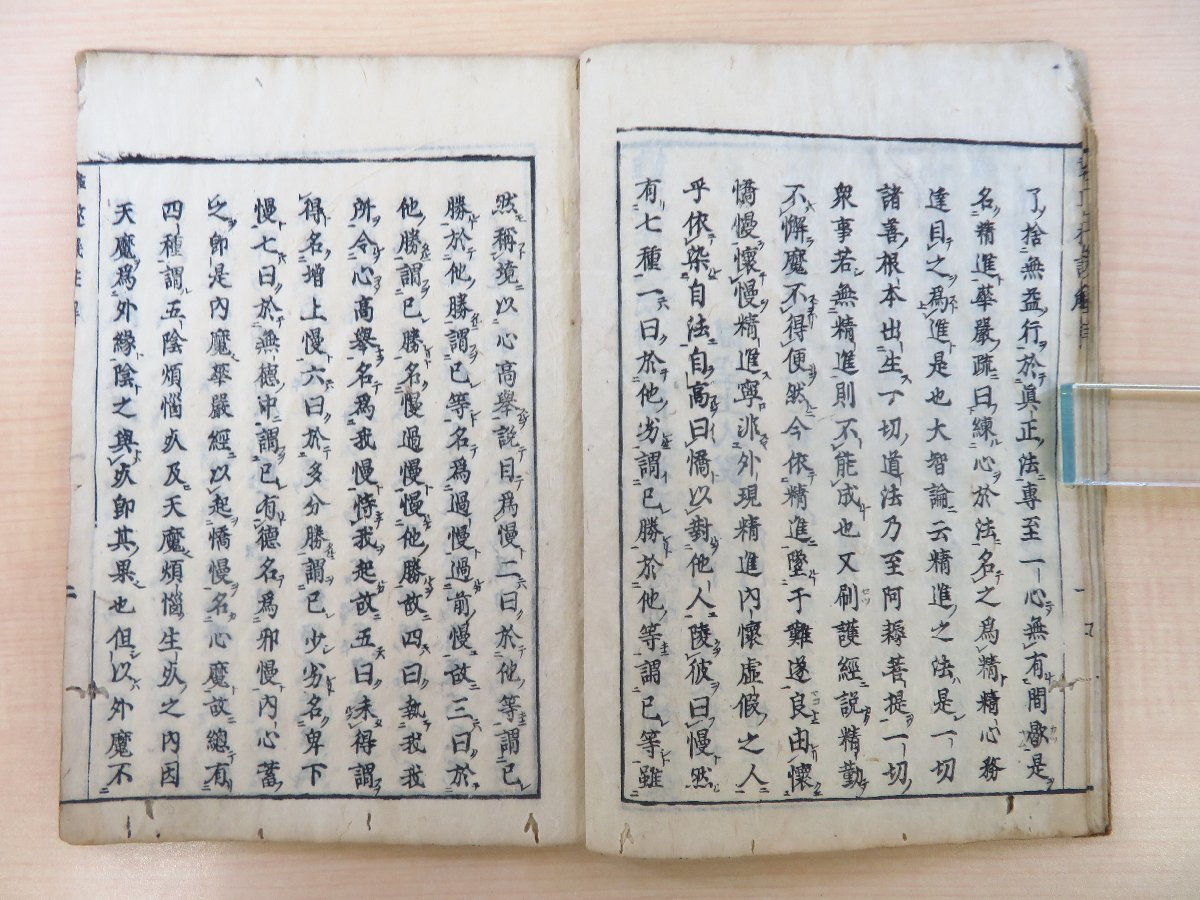 了捨無益行於眞正法專至一心無有間歇是
名精進華嚴疏曰練心於法名之爲精精心務
達目之爲進是也大智論云精進之法是一切
諸善根本出生一切道法乃至阿耨菩提一切
衆事若無精進則不能成也又刷護經說精勤
不懈魔不得便然今依精進墮于難遂良由懷
憍慢懷慢精進寧非外現精進內懷虛假之人
乎依染自法自高曰憍以對他人陵彼曰慢然
有七種一曰於他劣謂已勝於他等謂已等雖
然稱境以心高舉說目爲慢二曰於他等謂已
勝於他勝謂已等名爲過慢過前慢故三曰於
他勝謂已勝名慢過慢慢他勝故四曰執我我
所令心高舉名爲我慢恃我起故五曰未得謂
得名增上慢六曰於多分勝謂已少劣名卑下
慢七曰於無德中謂已有德名爲邪慢內心蓄
之卽是內魔華嚴經以起憍慢名心魔故總有
四種謂五陰煩惱𣦸及天魔煩惱生𣦸之內因
天魔爲外緣陰之與𣦸卽其果也但以外魔不
二